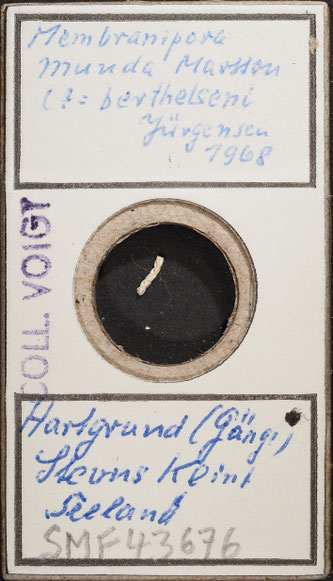 Membranipora
munda Marsson
(?= berthelseni
Jürgensen
1968
COLL. VOIGT
Hartgrund (Gänge)
Stevns Klint
Seeland
SMF 43676